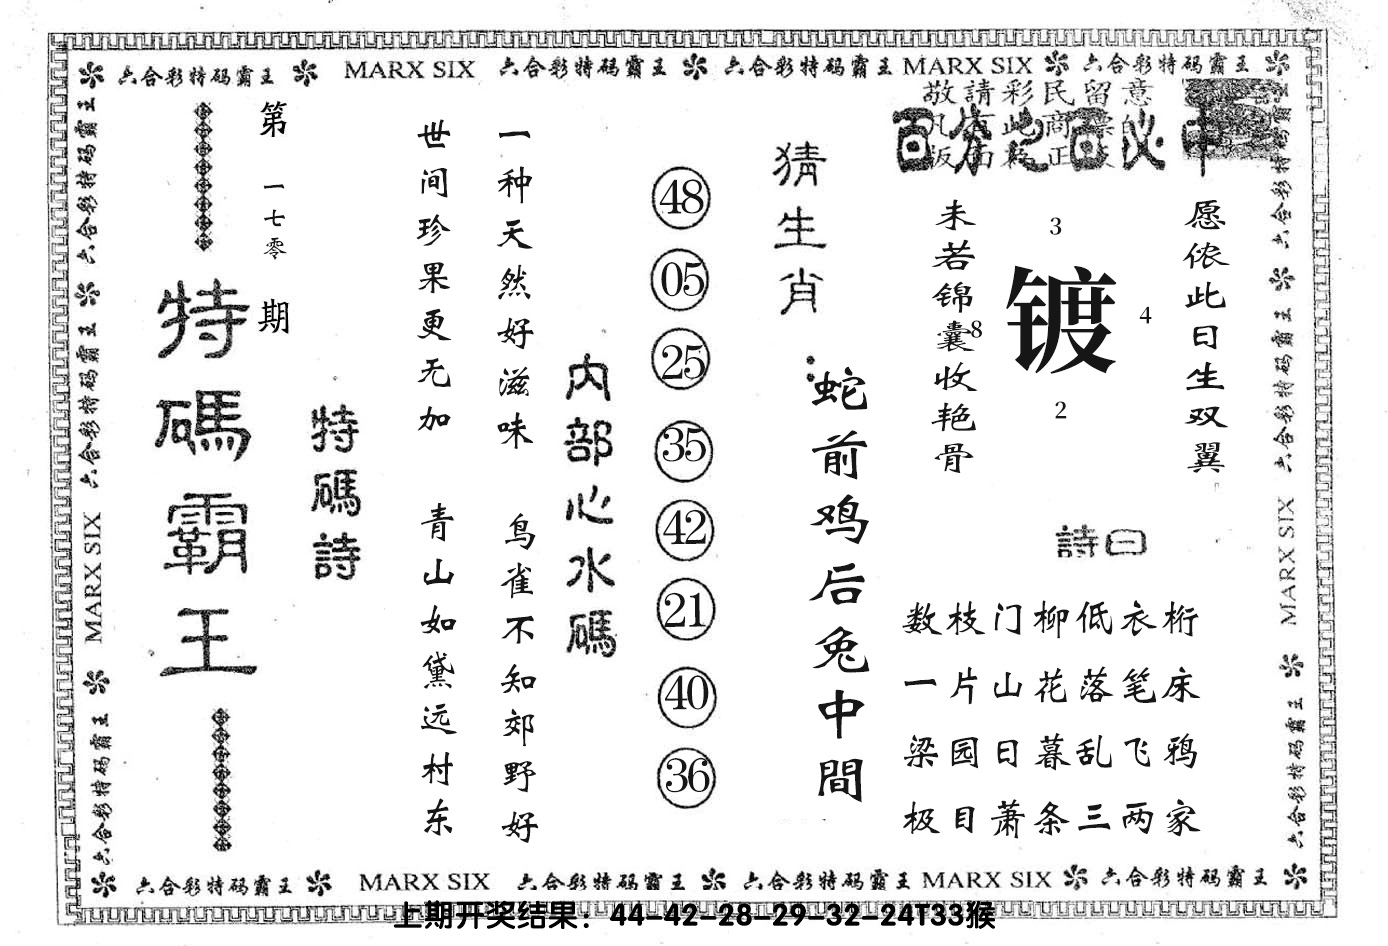 六合彩特码霸王 MARX SIX 六合彩特码霸王 六合彩特码霸王 MARX SIX 六合彩特码霸王
敬請彩民留意
百分之百必中
愿侬此日生双翼
3
8
镀
4
2
未若锦囊收艳骨
詩曰
数枝门柳低衣桁
一片山花落笔床
梁园日暮乱飞鸦
极目萧条三两家
猜生肖：
蛇前鸡后兔中間
48
05
25
35
42
21
40
36
内部心水碼
一种天然好滋味 鸟雀不知郊野好
世间珍果更无加 青山如黛远村东
特碼詩
第一七零期
特碼霸王
六合彩特码霸王 六合彩特码霸王 MARX SIX 六合彩特码霸王
六合彩特码霸王 六合彩特码霸王 MARX SIX 六合彩特码霸王
六合彩特码霸王 MARX SIX 六合彩特码霸王 六合彩特码霸王 MARX SIX 六合彩特码霸王
上期开奖结果：44-42-28-29-32-24T33猴